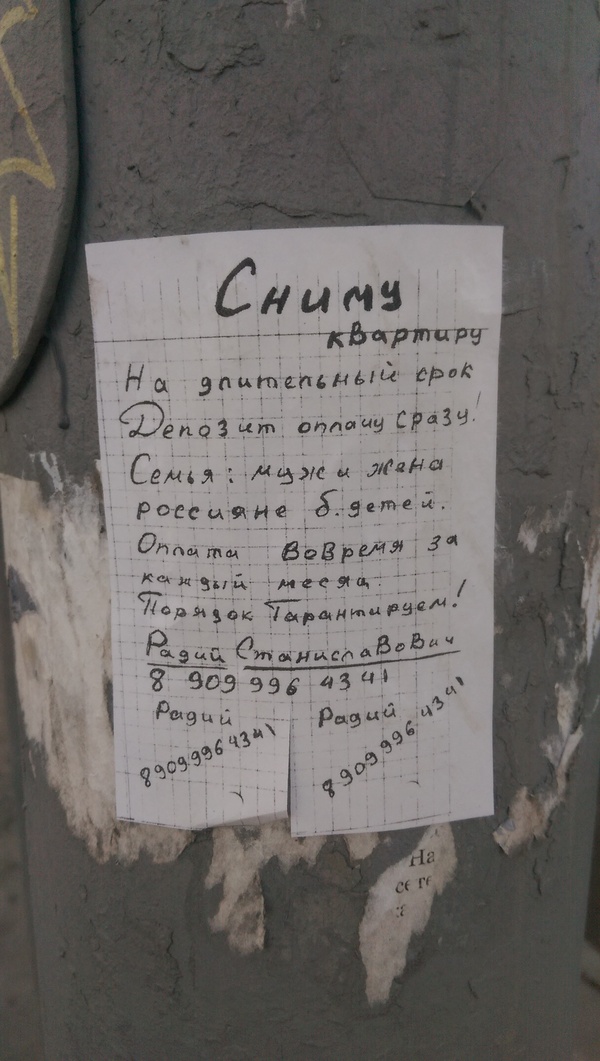 Сниму
квартиру
На длительный срок
Депозит оплачу сразу!
Семья: муж и жена
россияне б.детей.
Оплата вовремя за
каждый месяц.
Порядок Гарантируем!
Радий Станиславович
8 909 996 43 41
Радий
8909 996 43 41
Радий
8909 996 43 41
На